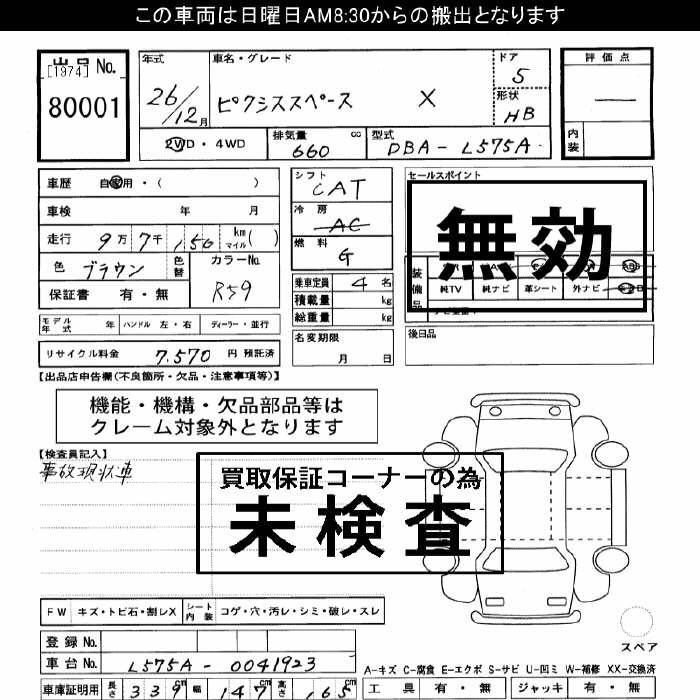 この車両は日曜日AM8:30からの搬出となります
出品No.
[1974]
80001
年式
26/12月
車名・グレード
ピクシススペース X
ドア
5
形状
HB
評価点
内装
2WD・4WD
排気量 cc
660
型式
DBA-L575A
車歴 自家用・( )
車検 年 月
走行 9万7千150 km マイル( )
色 ブラウン 色替
カラーNo.
R59
保証書 有・無
シフト
CAT
冷房
AC
燃料
G
乗車定員 4名
積載量 kg
総重量 kg
セールスポイント
無効
装備品
純TV 純ナビ 革シート 外ナビ
後日品
モデル年式 年 ハンドル 左・右 ディーラー・並行
名変期限
月 日
リサイクル料金 7.570 円 預託済
【出品店申告欄(不良箇所・欠品・注意事項等)】
機能・機構・欠品部品等は
クレーム対象外となります
【検査員記入】
事故現状車
買取保証コーナーの為
未検査
FW キズ・トビ石・割レX シート内装 コゲ・穴・汚レ・シミ・破レ・スレ
スペア
登録No.
車台No. L575A-0041923
A-キズ C-腐食 E-エクボ S-サビ U-凹ミ W-補修 XX-交換済
車庫証明用 長さ 339cm 幅 147cm 高さ 165cm
工具 有・無 ジャッキ 有・無